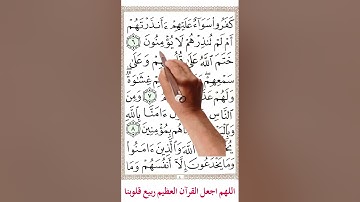 كَفَرُوا۟ سَوَآءٌ عَلَيْهِمْ ءَأَنذَرْتَهُمْ
أَمْ لَمْ تُنذِرْهُمْ لَا يُؤْمِنُونَ ٦
خَتَمَ ٱللَّهُ عَلَىٰ قُلُوبِهِمْ وَعَلَىٰ
سَمْعِهِمْ غِشَٰوَةٌ
وَلَهُمْ ٧
ٱلنَّاسِ ءَامَنَّا بِٱللَّهِ
هُم بِمُؤْمِنِينَ ٨
ٱللَّهَ وَٱلَّذِينَ ءَامَنُوا۟
وَمَا يَخْدَعُونَ إِلَّآ أَنفُسَهُمْ وَمَا
اللهم اجعل القرآن العظيم ربيع قلوبنا